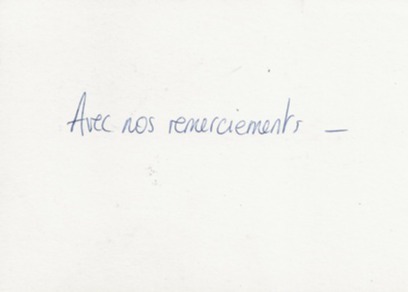 Avec nos remerciements —